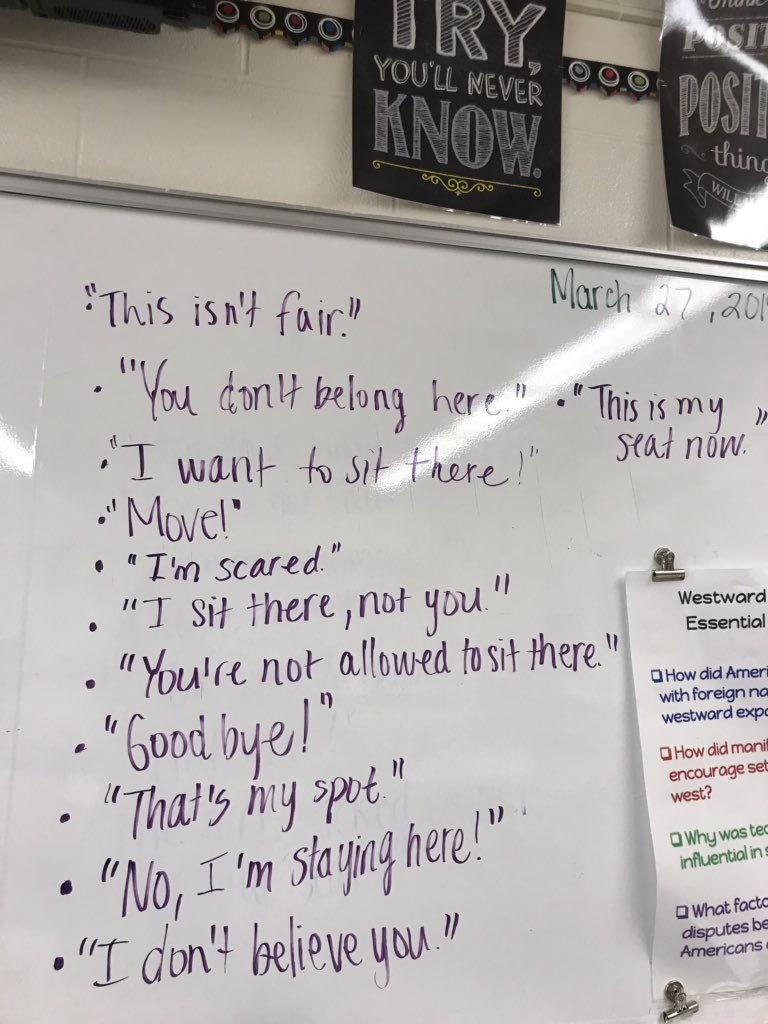 TRY,
YOU'LL NEVER
KNOW.
POSIT
POSIT
thing
WILL
March 27, 201
"This isn't fair."
• "You don't belong here."
• "This is my
seat now."
• "I want to sit there!"
• "Move!"
• "I'm scared."
• "I sit there, not you."
• "You're not allowed to sit there."
• "Good bye!"
• "That's my spot."
• "No, I'm staying here!"
• "I don't believe you."
Westward
Essential
❑ How did Ameri
with foreign na
westward expa
❑ How did manif
encourage set
west?
❑ Why was tec
influential in s
❑ What facto
disputes be
Americans